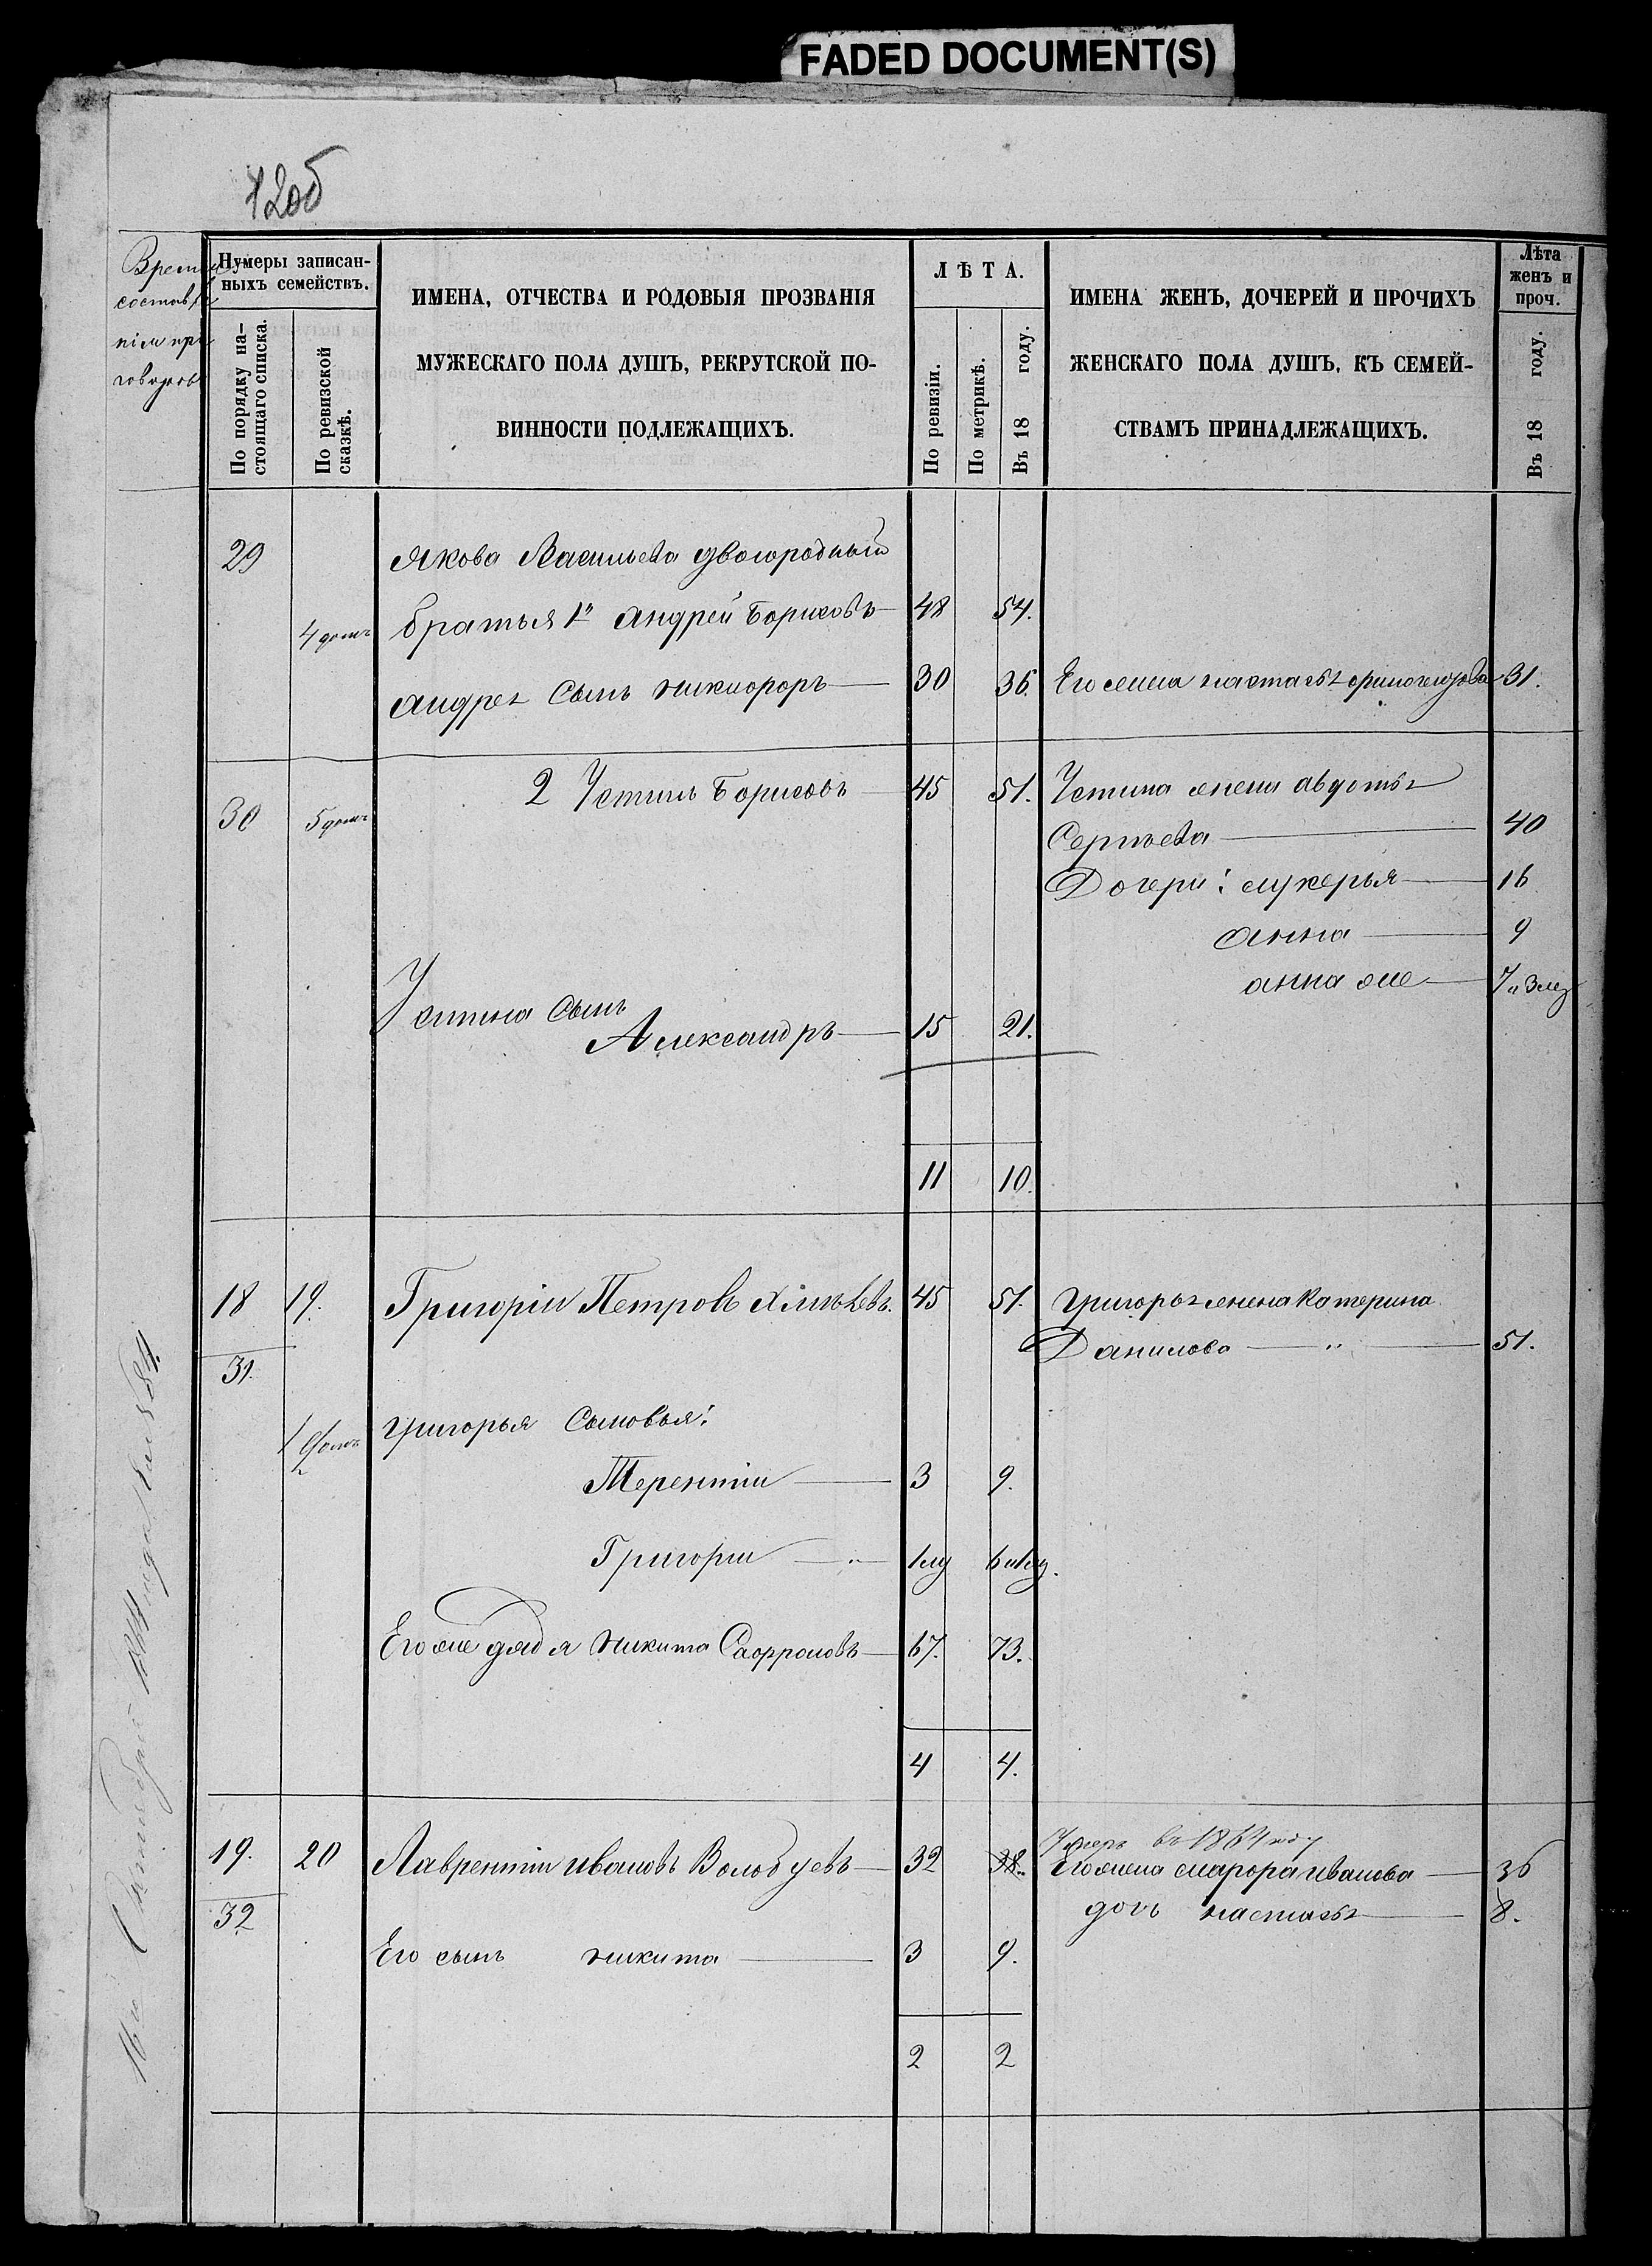 FADED DOCUMENT(S)
12об
Время
составле
нія при
говоровъ
Нумеры записан-
ныхъ семействъ.
По порядку на-
стоящаго списка.
По ревизской
сказкѣ.
ИМЕНА, ОТЧЕСТВА И РОДОВЫЯ ПРОЗВАНІЯ
МУЖЕСКАГО ПОЛА ДУШЪ, РЕКРУТСКОЙ ПО-
ВИННОСТИ ПОДЛЕЖАЩИХЪ.
ЛѢТА.
По ревизіи.
По метрикѣ.
Въ 18 году.
ИМЕНА ЖЕНЪ, ДОЧЕРЕЙ И ПРОЧИХЪ
ЖЕНСКАГО ПОЛА ДУШЪ, КЪ СЕМЕЙ-
СТВАМЪ ПРИНАДЛЕЖАЩИХЪ.
Лѣта
женъ и
проч.
Въ 18 году.
29 Якова Васильева двоюродныи
4 домъ братья 1й Андреи Борисовъ 48 54.
Андрея Сынъ Никифоръ 30 36. Его жена настасья 31.
30 5 домъ 2 Устинъ Борисовъ 45 51. Устина жена авдотья
Сергѣева 40
Дочери: лукерья 16
Анна 9
анна же 7 и 3 мѣ
Устина Сынъ
Александръ 15 21.
11 10.
18 19. Григоріи Петровъ 45 51. Григорья жена Катерина
Данилова " 51.
31.
1 домъ Григорья Сыновья:
Терентіи 3 9.
Григории " 1 му 6 и 1 му.
Его же дядя Никита Сафроновъ 67. 73.
4 4.
19. 20 Лаврентіи ивановъ Волобуевъ 32 38. Умеръ въ 1864 году
Его жена марфа иванова 36
32 дочь настасья 8.
Его сынъ никита 3 9.
2 2